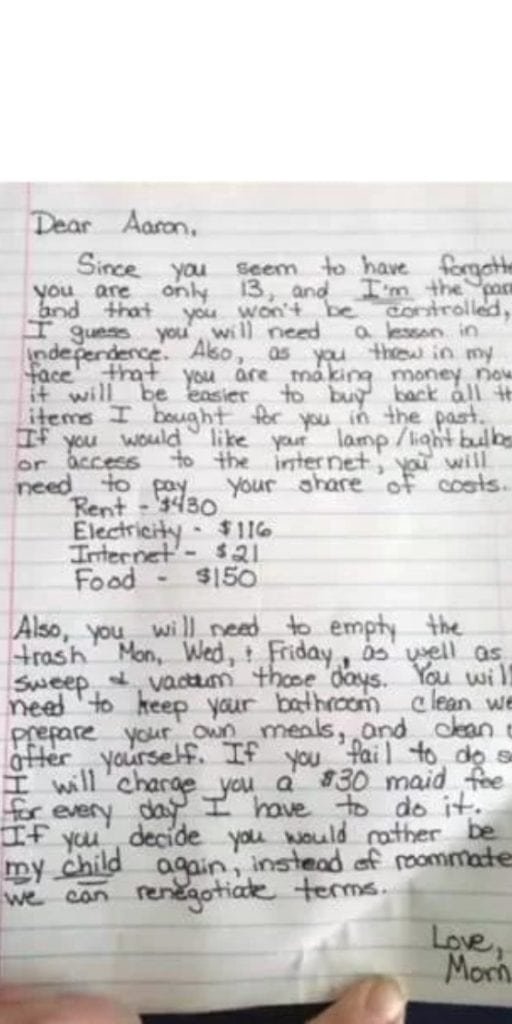 Dear Aaron,
Since you seem to have forgotte
you are only 13, and I'm the par
and that you won't be controlled,
I guess you will need a lesson in
independence. Also, as you threw in my
face that you are making money now
it will be easier to buy back all th
items I bought for you in the past.
If you would like your lamp/lightbulbs
or access to the internet, you will
need to pay your share of costs.
Rent - $430
Electricity - $116
Internet - $21
Food - $150
Also, you will need to empty the
trash Mon, Wed, & Friday, as well as
sweep & vacuum those days. You will
need to keep your bathroom clean we
prepare your own meals, and clean
after yourself. If you fail to do s
I will charge you a $30 maid fee
for every day I have to do it.
If you decide you would rather be
my child again, instead of roommate
we can renegotiate terms.
Love,
Mom